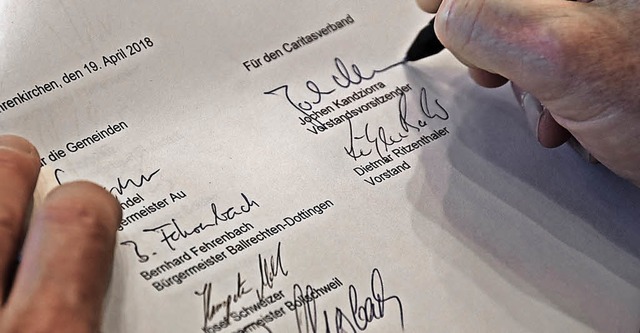 hrenkirchen, den 19. April 2018
Für den Caritasverband
Jochen Kandziorra
Vorstandsvorsitzender
Dietmar Ritzenthaler
Vorstand
r die Gemeinden
ndel
germeister Au
B. Fehrenbach
Bernhard Fehrenbach
Bürgermeister Ballrechten-Dottingen
Josef Schweizer
germeister Bollschweil